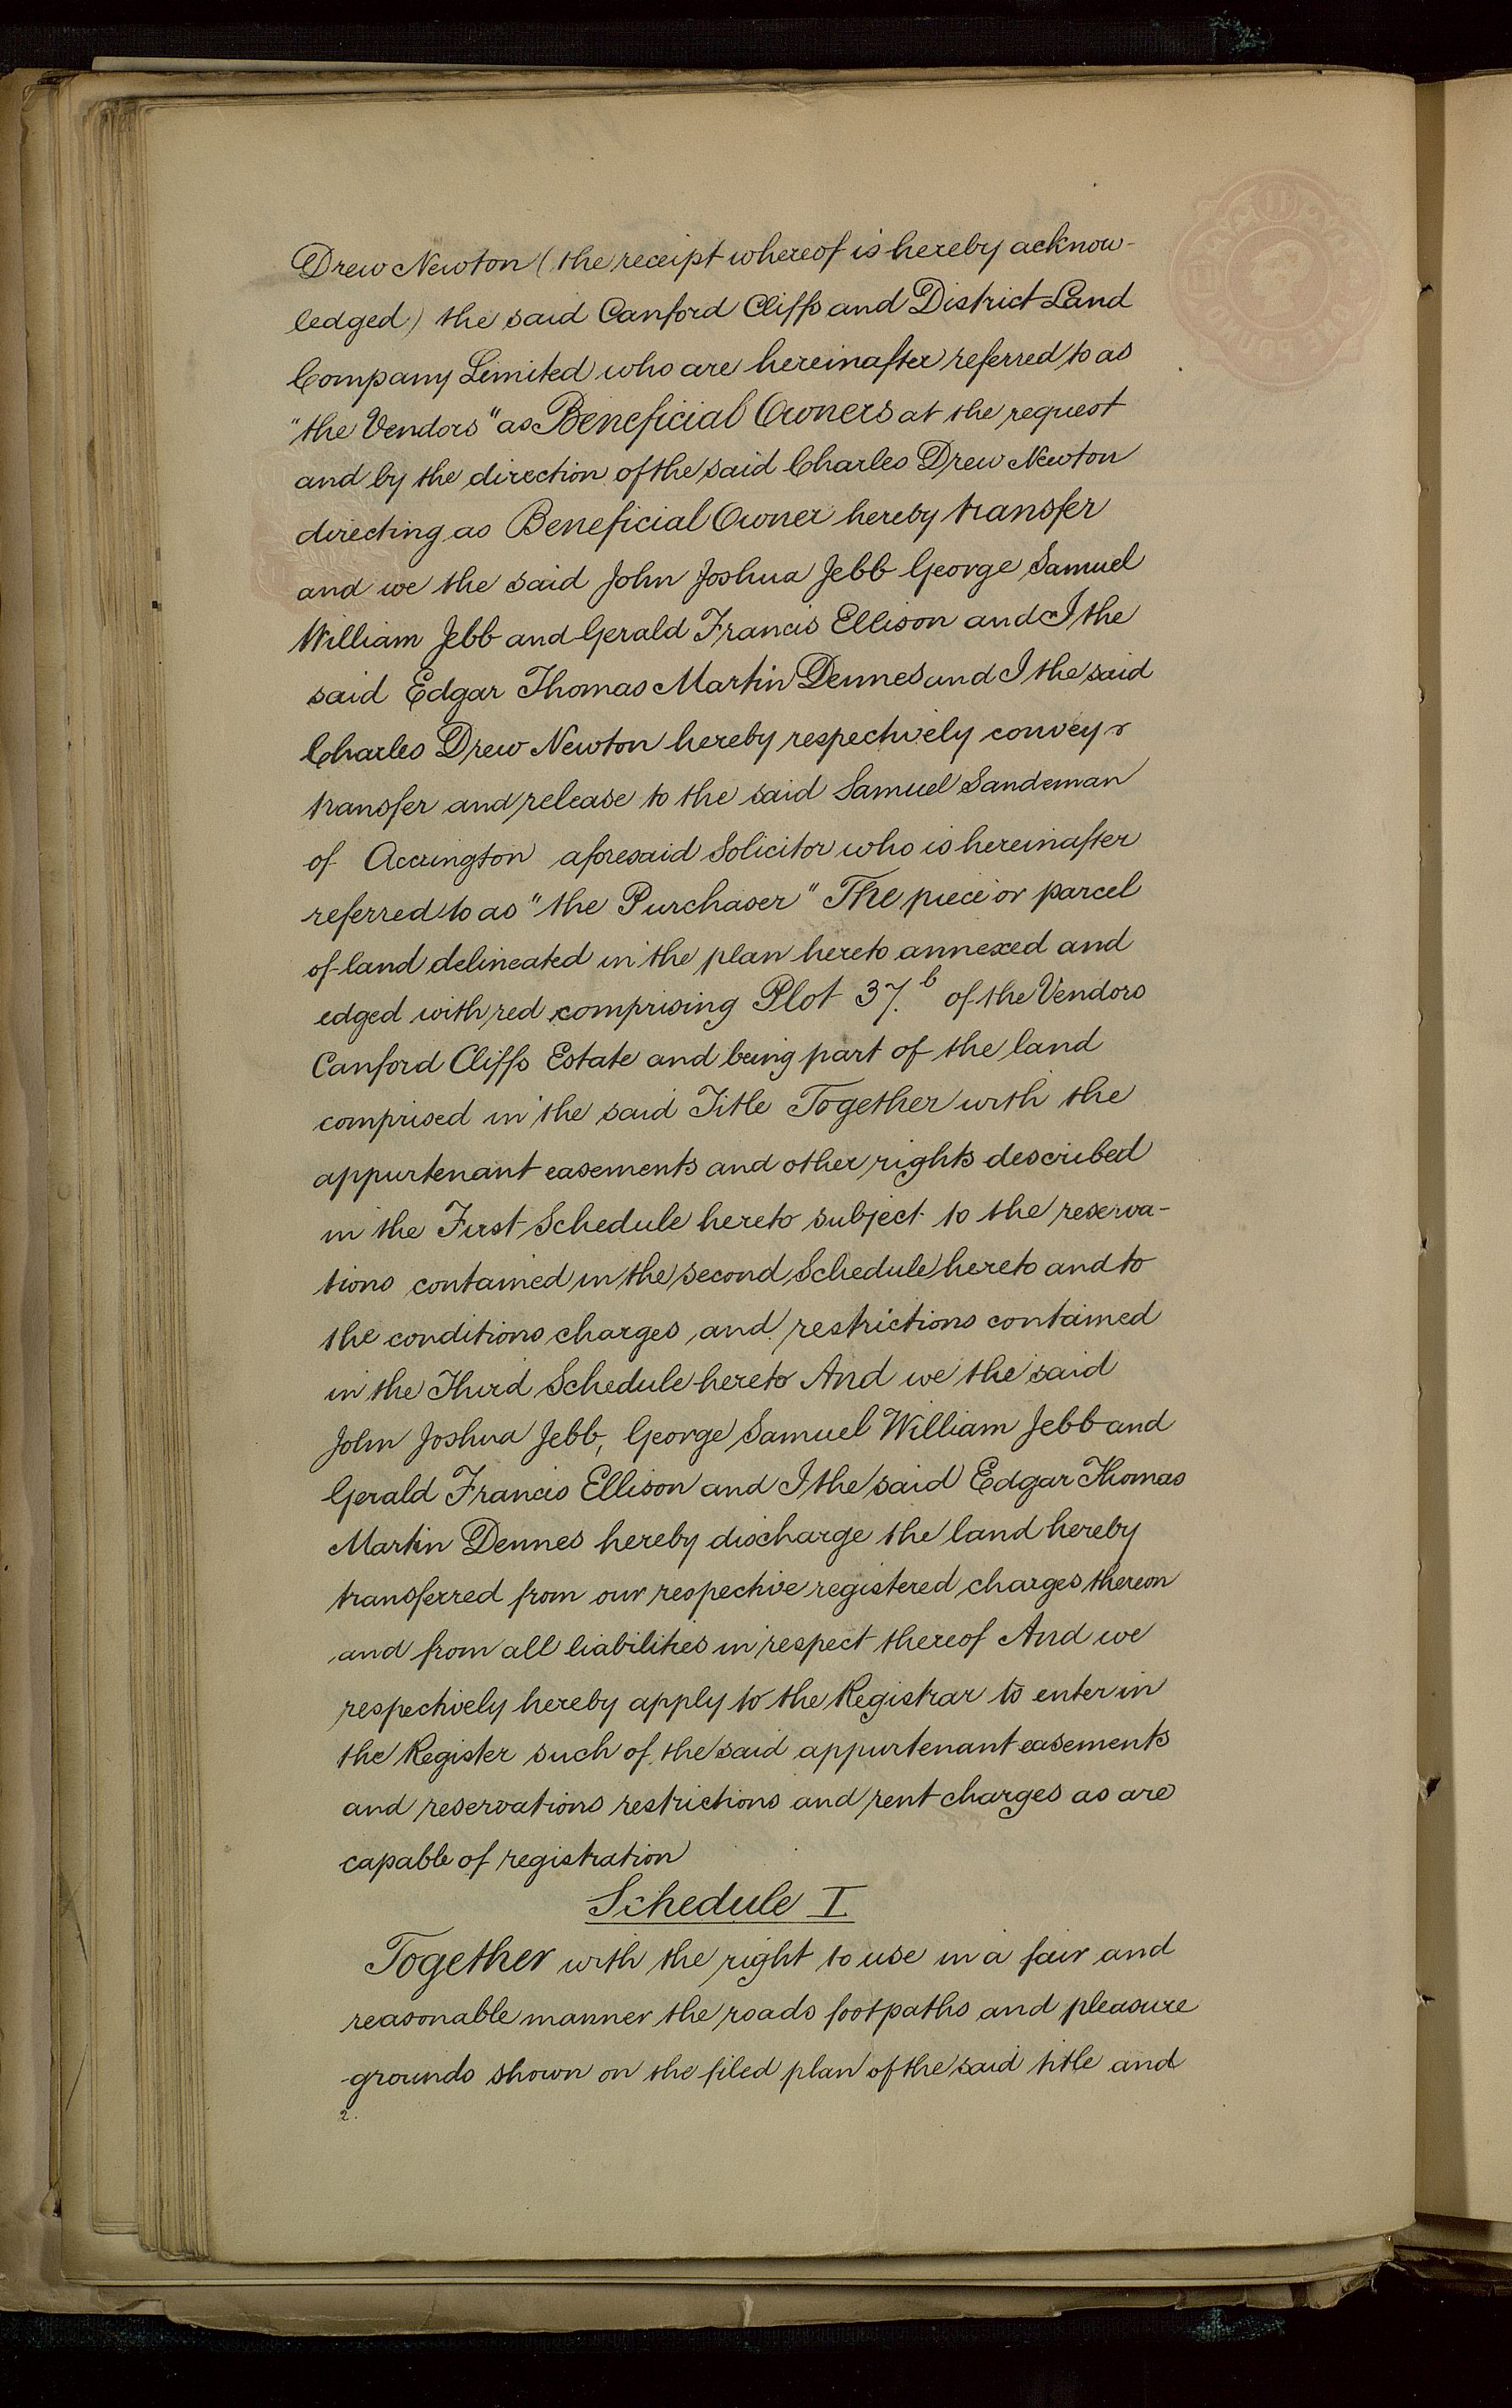 Drew Newton (the receipt whereof is hereby acknow-
ledged) the said Canford Cliffs and District Land
Company Limited who are hereinafter referred to as
"the Vendors" as Beneficial Owners at the request
and by the direction of the said Charles Drew Newton
directing as Beneficial Owner hereby transfer
and we the said John Joshua Jebb George Samuel
William Jebb and Gerald Francis Ellison and I the
said Edgar Thomas Martin Dennes and I the said
Charles Drew Newton hereby respectively convey &
transfer and release to the said Samuel Sandeman
of Accrington aforesaid Solicitor who is hereinafter
referred to as "the Purchaser" The piece or parcel
of land delineated in the plan hereto annexed and
edged with red comprising Plot 37.b of the Vendors
Canford Cliffs Estate and being part of the land
comprised in the said Title Together with the
appurtenant easements and other rights described
in the First Schedule hereto subject to the reserva-
tions contained in the second Schedule hereto and to
the conditions charges and restrictions contained
in the Third Schedule hereto And we the said
John Joshua Jebb, George Samuel William Jebb and
Gerald Francis Ellison and I the said Edgar Thomas
Martin Dennes hereby discharge the land hereby
transferred from our respective registered charges thereon
and from all liabilities in respect thereof And we
respectively hereby apply to the Registrar to enter in
the Register such of the said appurtenant easements
and reservations restrictions and rent charges as are
capable of registration
Schedule I
Together with the right to use in a fair and
reasonable manner the roads footpaths and pleasure
grounds shown on the filed plan of the said title and
2.